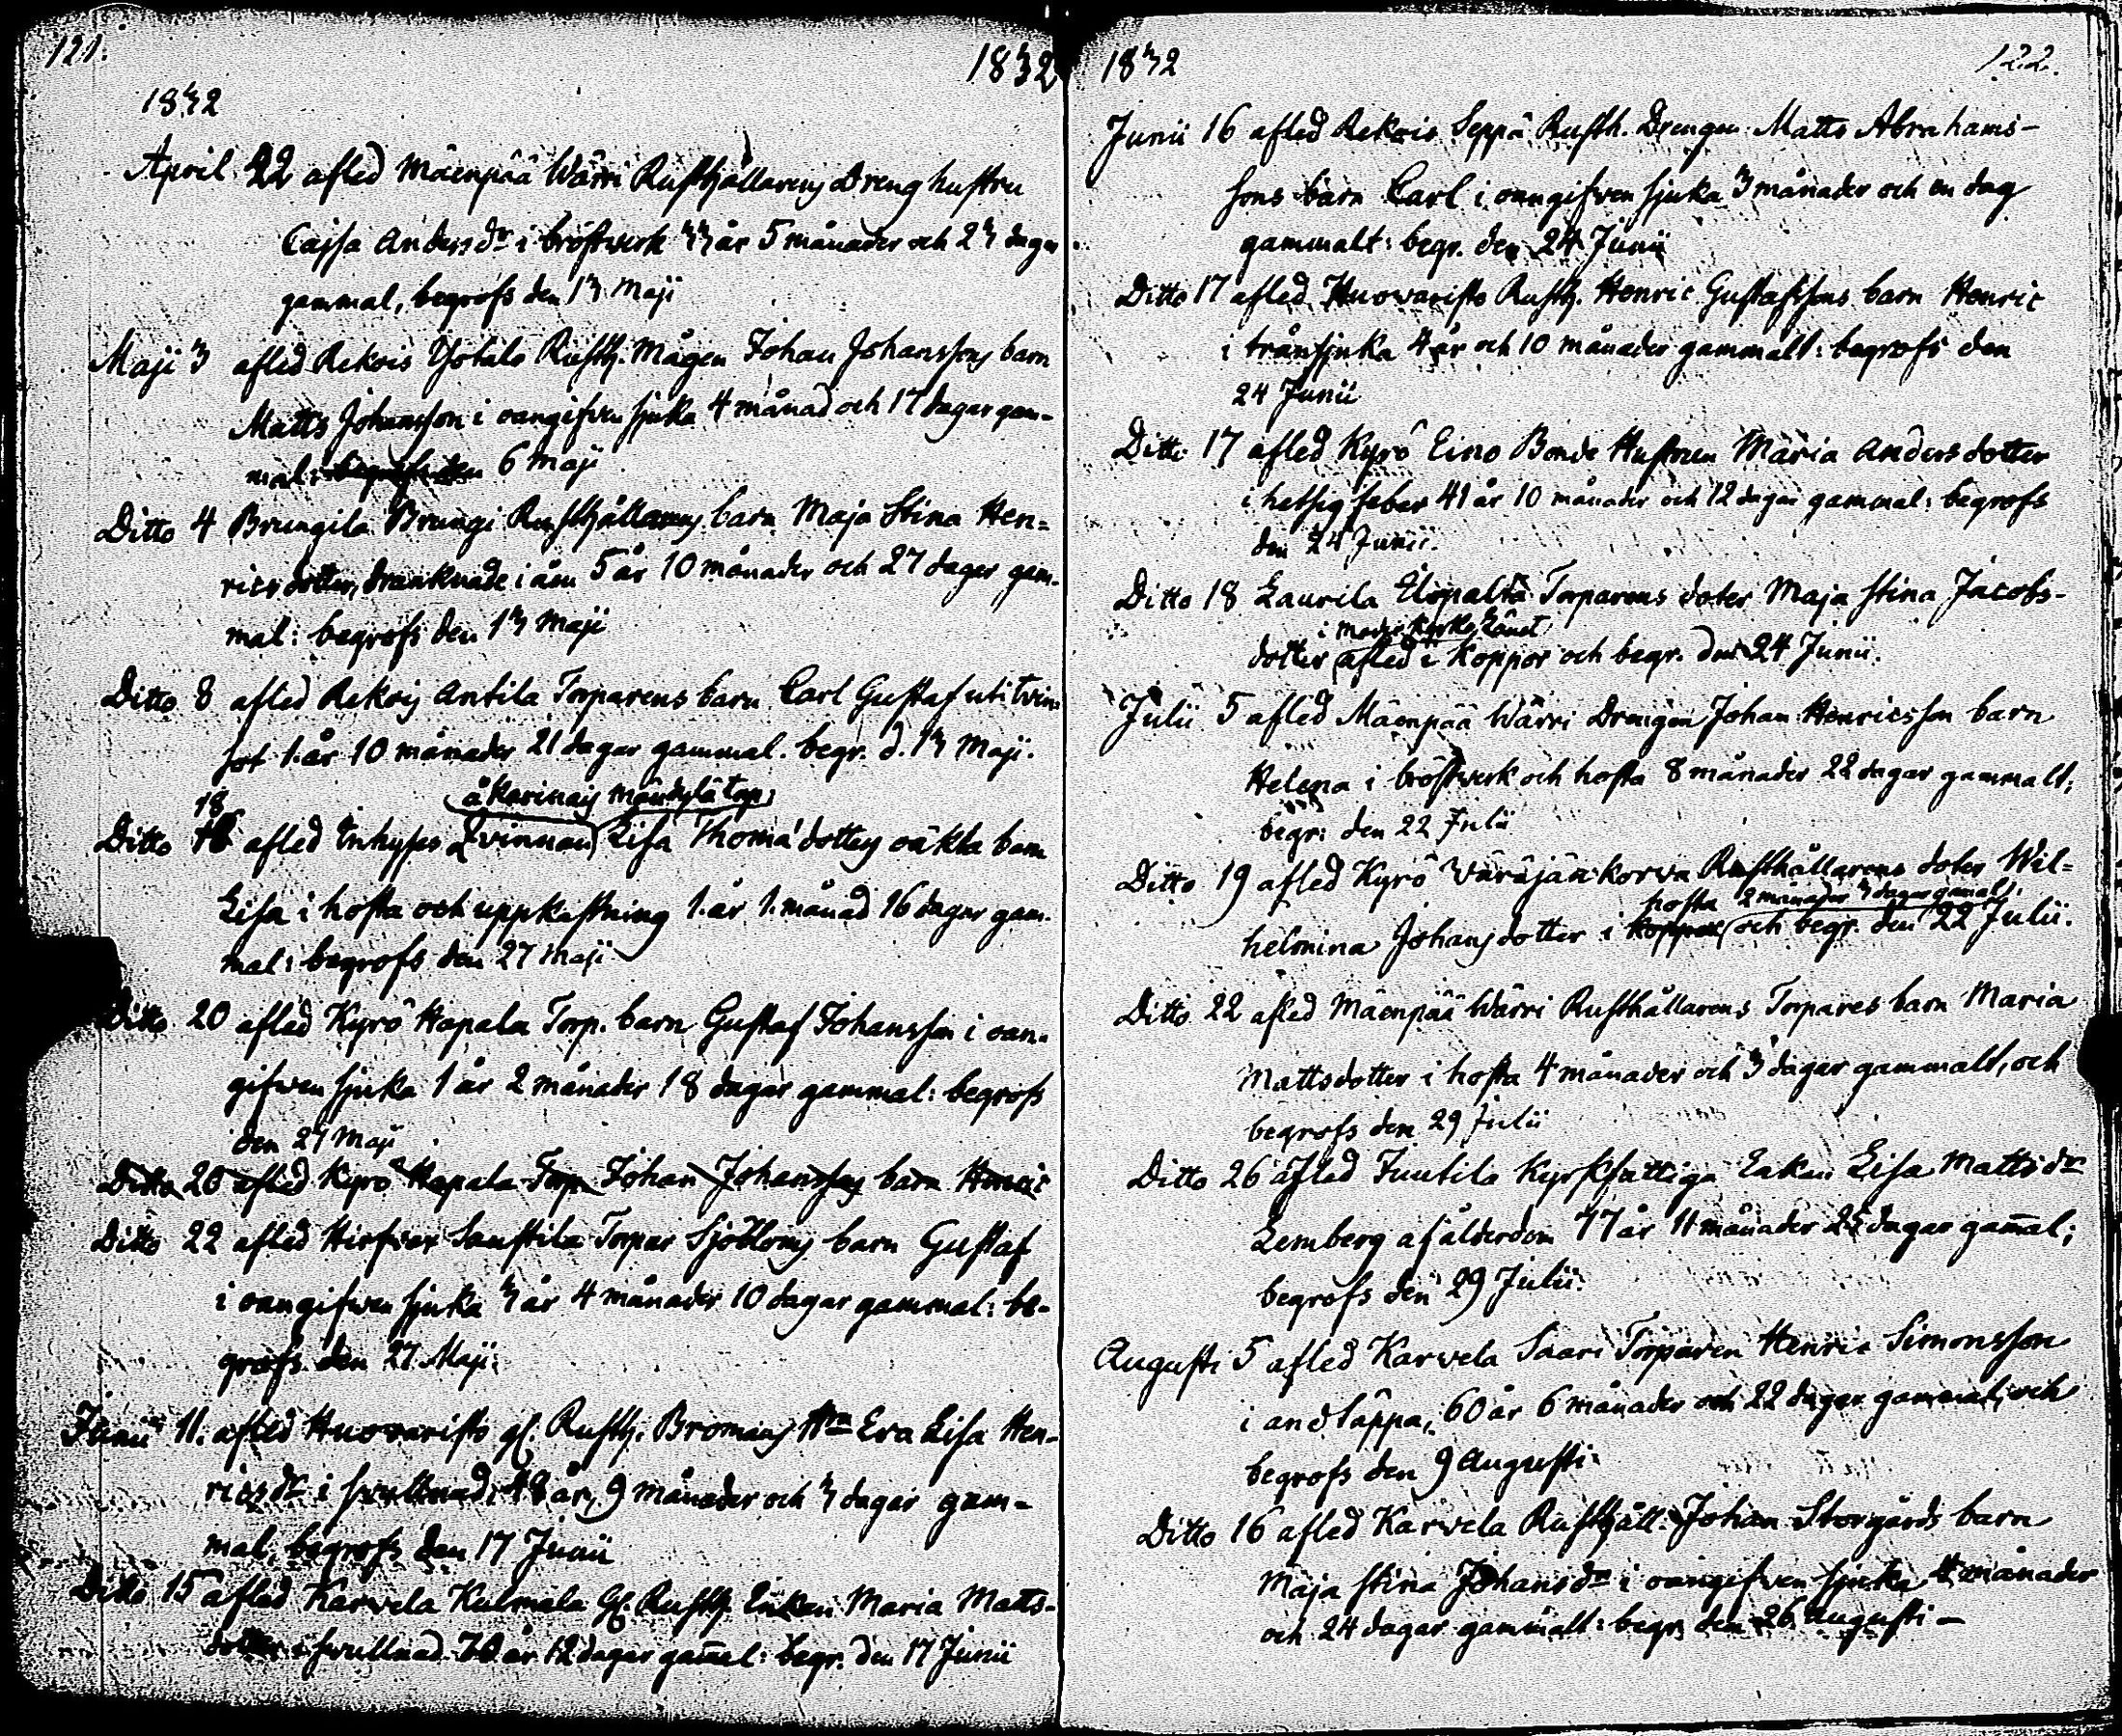 121.
1832
1832
April 22 afled Mäenpää Wärri Rusthållarens Dreng hustru
Cajsa Andersdr i bröstwerk 33 år 5 månader och 23 dagar
gammal, begrofs den 13 Maji
Maji 3 afled Rekois Ylotalo Rusth. Mågen Johan Johanssons barn
Matts Johansson i oangifven sjuka 4 månad och 17 dagar gam-
mal: begrofs den 6 Maji
Ditto 4 Brungila Brungi Rusthållarens barn Maja Stina Hen-
ricsdotter, drunknade i åen 5 år 10 månader och 27 dagar gam-
mal: begrofs den 13 Maji
Ditto 8 afled Rekois Antila Torparens barn Carl Gustaf uti twin-
sot 1. år 10 månader 21 dagar gammal. begr. d. 13 Maji.
å Karinais Mändylä Torp
18
Ditto afled Inhyses Qvinnans Lisa Thomä dotters oäkta barn
Lisa i hosta och uppkastning 1. år 1. månad 16 dagar gam-
mal: begrofs den 27 Maji
Ditto 20 afled Kyrö Hapala Torp. barn Gustaf Johansson i oan-
gifwen sjuka 1 år 2 månader 18 dagar gammal: begrofs
den 27 Maji
Ditto 20 afled Kyrö Hapala Torp. Johan Johanssons barn Henric
Ditto 22 afled Hirfwox Sauftila Torpar Sjöbloms barn Gustaf
i oangifwen sjuka 3 år 4 månader 10 dagar gammal: be-
grofs den 27 Maji.
Junii 11. afled Huovaristo gl. Rusth. Bromans Hru Eva Lisa Hen-
ricsdr i swullnad, 48 år, 9 månader och 3 dagar gam-
mal, begrofs den 17 Junii
Ditto 15 afled Karvela Kulmala Gl. Rusth Enkan Maria Matts-
dotter i swullnad 70 år 12 dagar gam̄al: begr. den 17 Junii
1832
122.
Junii 16 afled Rekois Seppä Rusth. Drengen Matts Abrahams-
sons barn Carl i oangifwen sjuka 3 månader och en dag
gammalt: begr. den 24 Junii
Ditto 17 afled Huovaristo Rusth. Henric Gustafssons barn Henric
i trånsjuka 4 år och 10 månader gammalt: begrofs den
24 Junii
Ditto 17 afled Kyrö Eino Bonde Hustrun Maria Andersdotter
i hetsig feber 41 år 10 månader och 12 dagar gammal: begrofs
den 24 Junii.
Ditto 18 Laurila Torparens doter Maja Stina Jacobs-
i
dotter afled i koppor och begr. den 24 Junii.
Julii 5 afled Mäenpää Wärri Drengen Johan Henricsson barn
Helena i bröstwerk och hosta 8 månader 22 dagar gammalt;
begr: den 22 Julii
Ditto 19 afled Kyrö Väräjänkorva Rusthållarens doter Wil-
hosta 2 månader 3 dagar gamalt.
helmina Johansdotter i koppor och begr. den 22 Julii.
Ditto 22 afled Mäenpää Wärri Rusthållarens Torpares barn Maria
Mattsdotter i hosta 4 månader och 3 dagar gammalt, och
begrofs den 29 Julii
Ditto 26 afled Juutila Kyrkfattiga Enkan Lisa Mattsdr
Lemberg af ålderdom 77 år 11 månader 25 dagar gam̄al;
begrofs den 29 Julii.
Augusti 5 afled Karvela Saari Torparen Henric Simonsson
i andtäppa, 60 år 6 månader och 22 dagar gammal, och
begrofs den 9 Augusti
Ditto 16 afled Karvela Rusthåll. Johan Storgårds barn
Maja Stina Johansdr i oangifwen sjuka 4 månader
och 24 dagar gammalt: begr. den 26 Augusti -